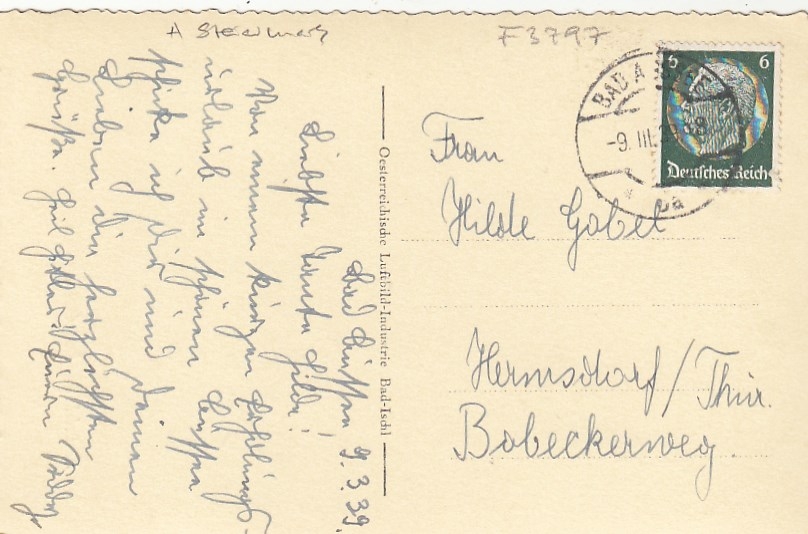 A Steiermark
F3797
BAD AUSSEE
-9. III. 39
6 6
Deutsches Reich
Bad Aussee 9.3.39.
Liebste Tante Hilde!
Von meinem kurzen Erholungs-
urlaub im schönen Aussee
schicke ich Dir und Deinen
Lieben die herzlichsten
Grüße. Heil Hitler!
Oesterreichische Luftbild-Industrie Bad-Ischl
Frau
Hilde Gabel
Hermsdorf/Thür.
Bobeckerweg.